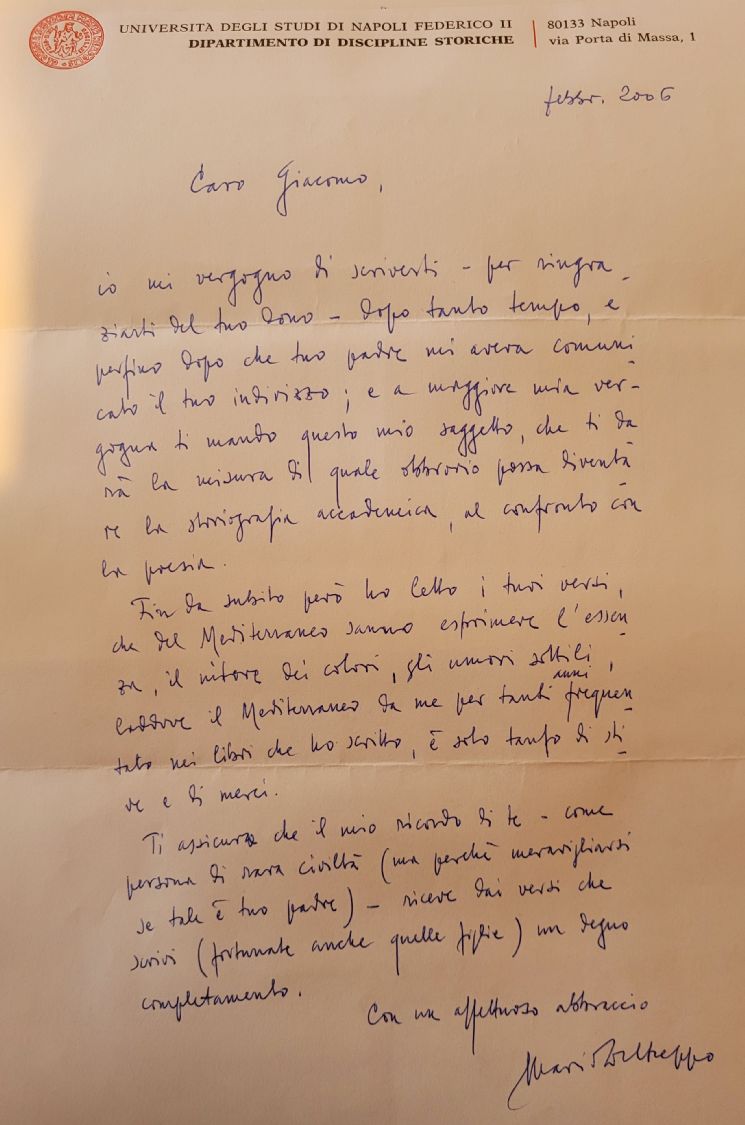 UNIVERSITA DEGLI STUDI DI NAPOLI FEDERICO II
DIPARTIMENTO DI DISCIPLINE STORICHE
80133 Napoli
via Porta di Massa, 1
febbr. 2006
Caro Giacomo,
io mi vergogno di scriverti - per ringra-
ziarti del tuo dono - dopo tanto tempo, e
perfino dopo che tuo padre mi aveva comuni-
cato il tuo indirizzo; e a maggiore mia ver-
gogna ti mando questo mio saggetto, che ti da-
rà la misura di quale obbrorio possa diventa-
re la storiografia accademica, al confronto con
la poesia.
Fin da subito però ho letto i tuoi versi,
che del Mediterraneo sanno esprimere l'essen-
za, il nitore dei colori, gli umori sottili,
laddove il Mediterraneo da me per tanti anni frequen-
tato nei libri che ho scritto, è solo tanfo di sti-
ve e di merci.
Ti assicuro che il mio ricordo di te - come
persona di rara civiltà (ma perché meravigliarsi
se tale è tuo padre) - riceve dai versi che
scrivi (fortunate anche quelle figlie) un degno
completamento.
Con un affettuoso abbraccio
Mario Del Treppo